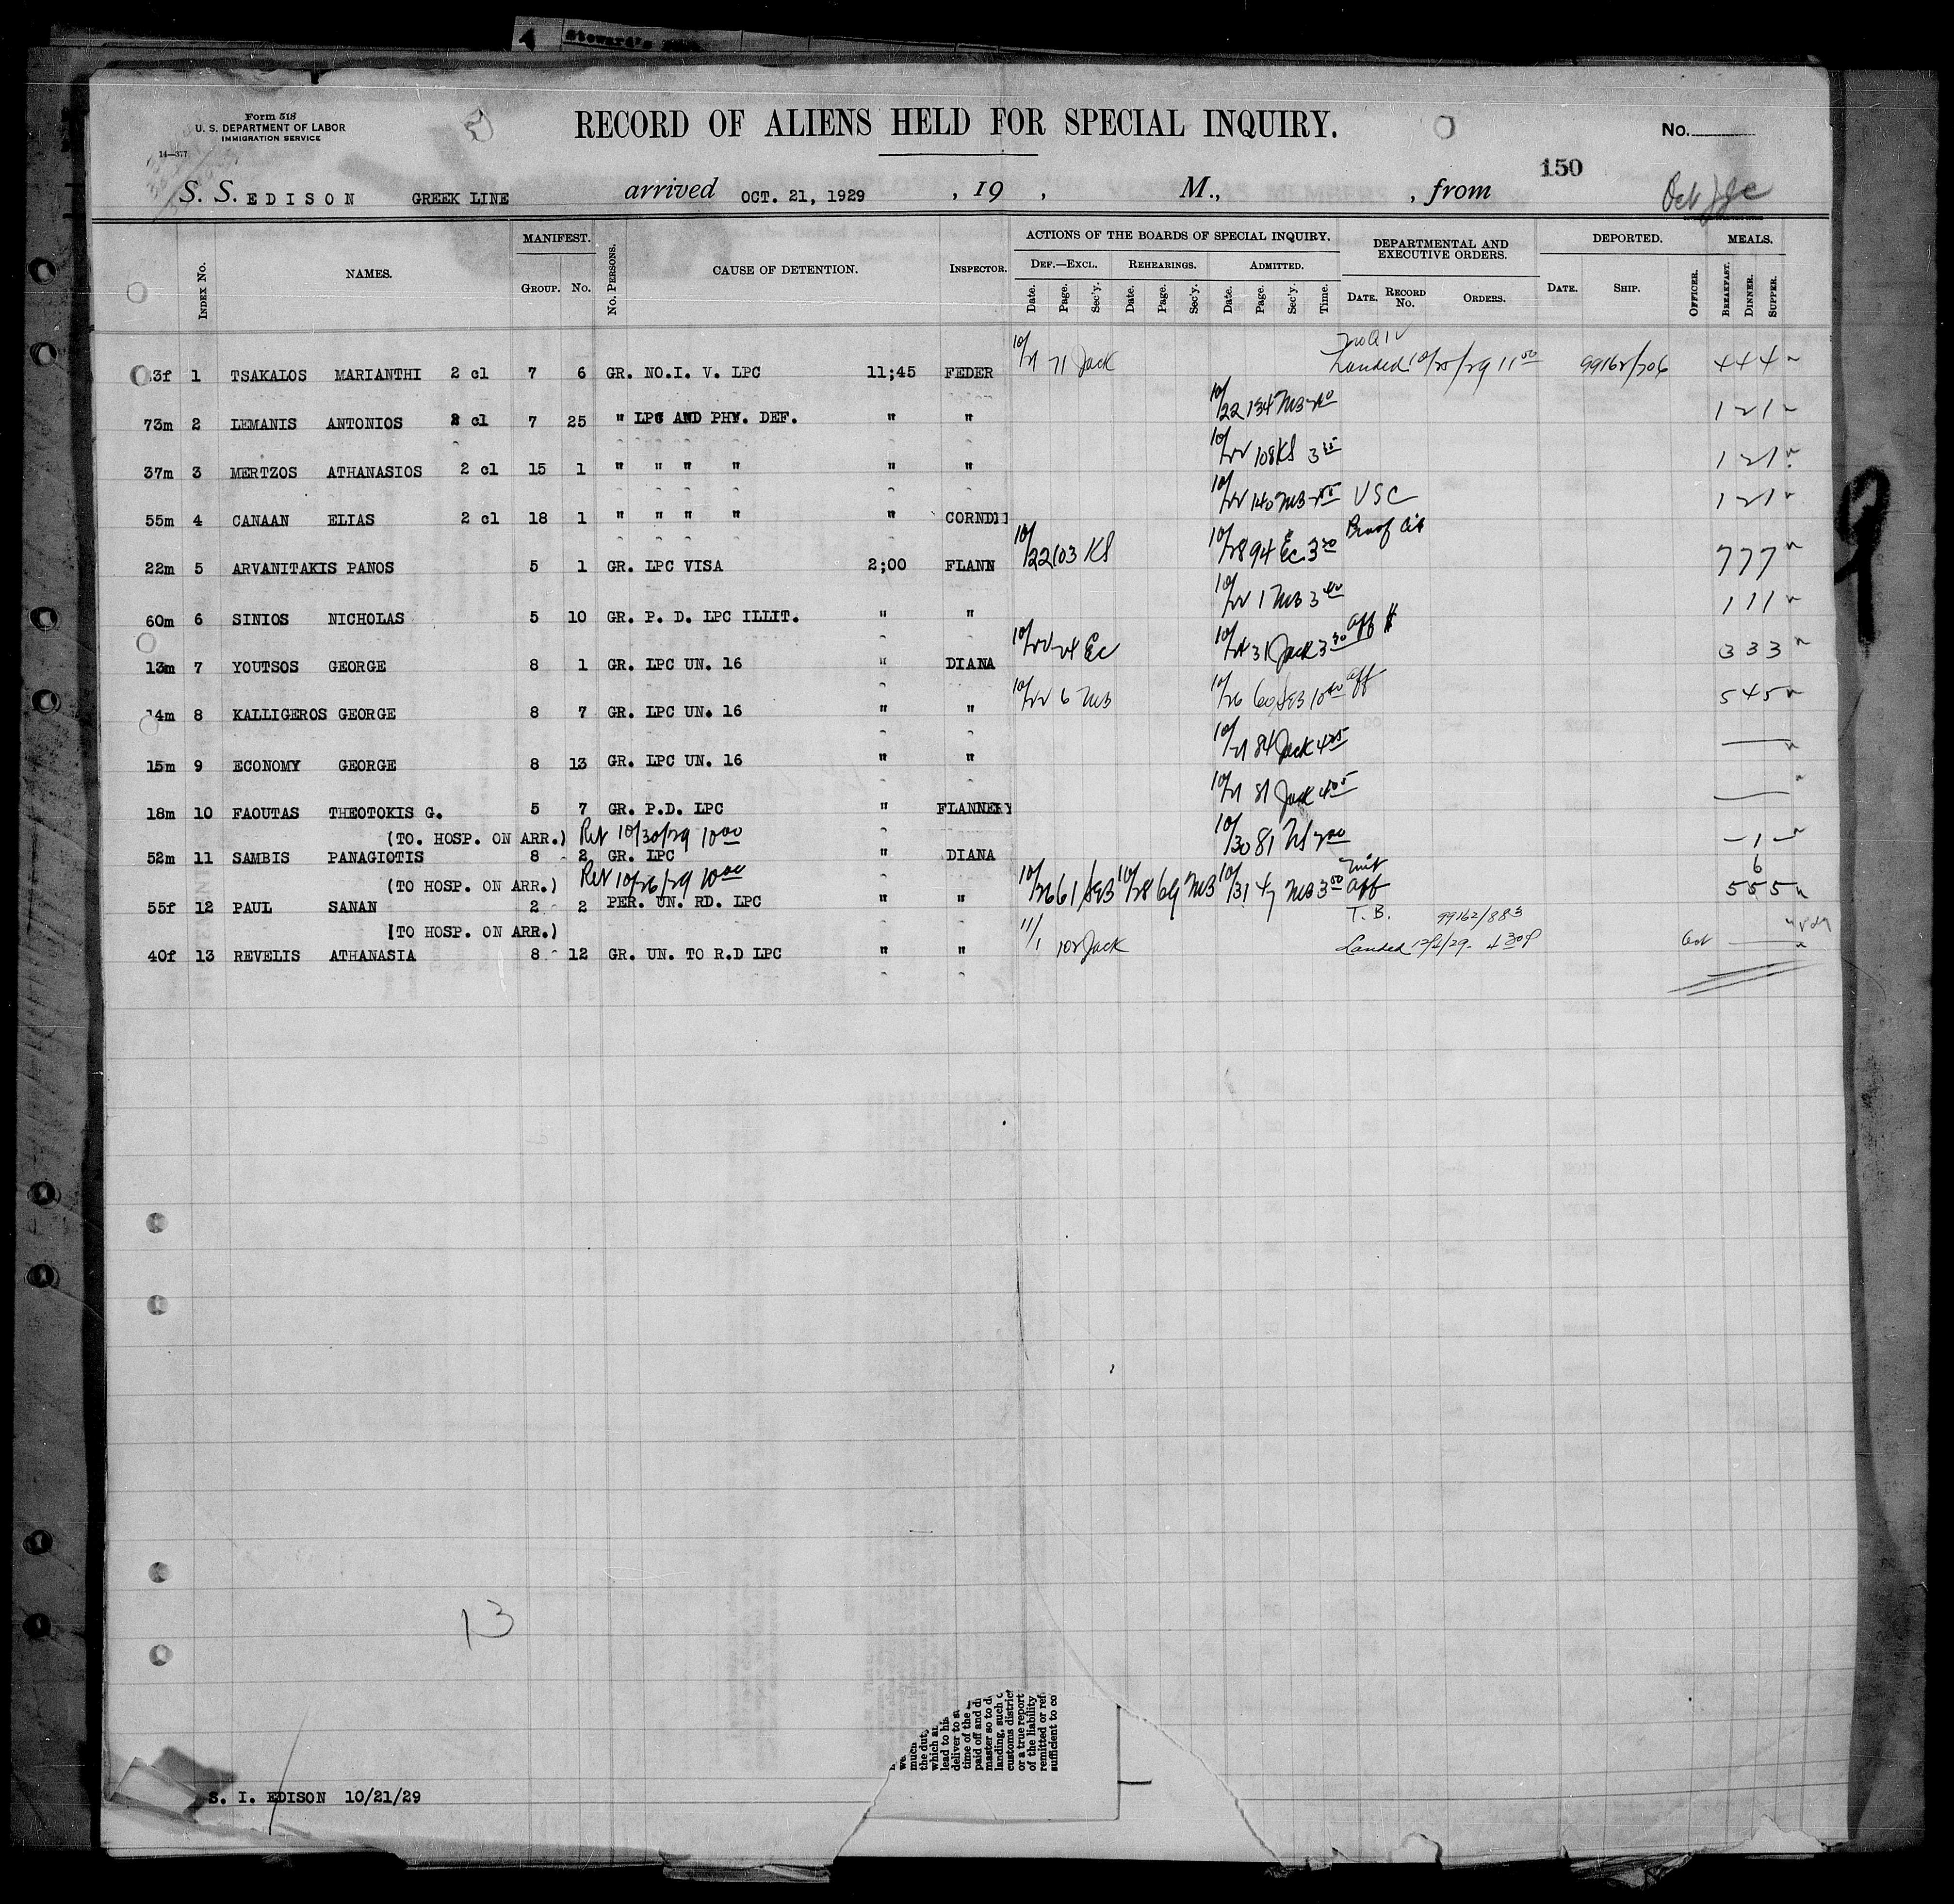 Steward's
Form 518
U. S. DEPARTMENT OF LABOR
IMMIGRATION SERVICE
14—377
RECORD OF ALIENS HELD FOR SPECIAL INQUIRY.
No.
150
S. S. EDISON GREEK LINE arrived OCT. 21, 1929 , 19 , M., , from
INDEX No. NAMES. MANIFEST. GROUP. No. No. PERSONS. CAUSE OF DETENTION. INSPECTOR.
ACTIONS OF THE BOARDS OF SPECIAL INQUIRY. DEF.—EXCL. Date. Page. Sec'y. REHEARINGS. Date. Page. Sec'y. ADMITTED. Date. Page. Sec'y. Time.
DEPARTMENTAL AND EXECUTIVE ORDERS. DATE. RECORD No. ORDERS. DEPORTED. DATE. SHIP. OFFICER. MEALS. BREAKFAST. DINNER. SUPPER.
3f 1 TSAKALOS MARIANTHI 2 cl 7 6 GR. NO.I. V. LPC 11;45 FEDER 71 Jack Landed 11 00 4 4 4
73m 2 LEMANIS ANTONIOS 2 cl 7 25 " LPC AND PHY. DEF. " " 10/22 134 MB 1 2 1
37m 3 MERTZOS ATHANASIOS 2 cl 15 1 " " " " " " 10/22 108 KS 1 2 1
55m 4 CANAAN ELIAS 2 cl 18 1 " " " " " 10/22 140 MB USC 1 2 1
22m 5 ARVANITAKIS PANOS 5 1 GR. LPC VISA 2;00 FLANN 10/22 103 KS 10/28 94 Ec 3 30 Proof 7 7 7
60m 6 SINIOS NICHOLAS 5 10 GR. P. D. LPC ILLIT. " " 10/22 1 MB 1 1 1
13m 7 YOUTSOS GEORGE 8 1 GR. LPC UN. 16 " DIANA Ec 31 Jack 3 30 aff $ 3 3 3
14m 8 KALLIGEROS GEORGE 8 7 GR. LPC UN. 16 " " 10/22 6 MB 10/26 60 aff 5 4 5
15m 9 ECONOMY GEORGE 8 13 GR. LPC UN. 16 " " 84 Jack
18m 10 FAOUTAS THEOTOKIS G. 5 7 GR. P.D. LPC " FLANNERY 81 Jack
(TO. HOSP. ON ARR.) Ret 10/30/29 10 00
52m 11 SAMBIS PANAGIOTIS 8 2 GR. LPC " DIANA 10/30 81 2 00 — 1 —
(TO HOSP. ON ARR.) Ret 10/26/29 10 00
55f 12 PAUL SANAN 2 2 PER. UN. RD. LPC " " 10/26 61 10/28 69 MB 10/31 47 MB 3 50 aff 5 5 5
[TO HOSP. ON ARR.) T. B. 99162/883
40f 13 REVELIS ATHANASIA 8 12 GR. UN. TO R.D LPC " " 11/1 102 Jack Landed 12/4/29 - 4 30 P
13
S. I. EDISON 10/21/29
much
the duty
which
lead to his
deliver to
time of the
paid off and
master so to
landing, such
customs district
or a true report
of the liability
remitted or
sufficient to